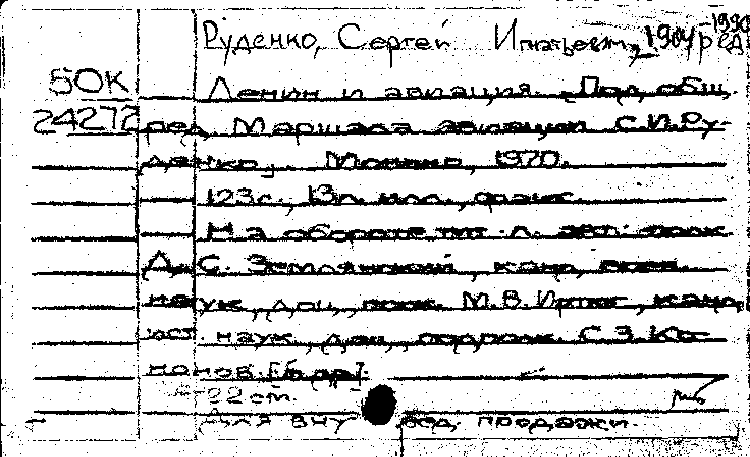 Руденко, Сергей Игнатьевич, 1904-1990
ред.
50К Ленин и авиация. Под общ.
24272 ред. Маршала авиации С.И.Ру-
денко. Монино, 1970.
123с., 13л. илл., факс.
На обороте тит. л. авт: полк.
Д.С. Землянский, канд. воен.
наук, доц., полк. М.В. канд.
ист. наук, доц., подполк. С.З. Ко-
нонов. [б.др].
22 см.
Для вну вед. продажи.